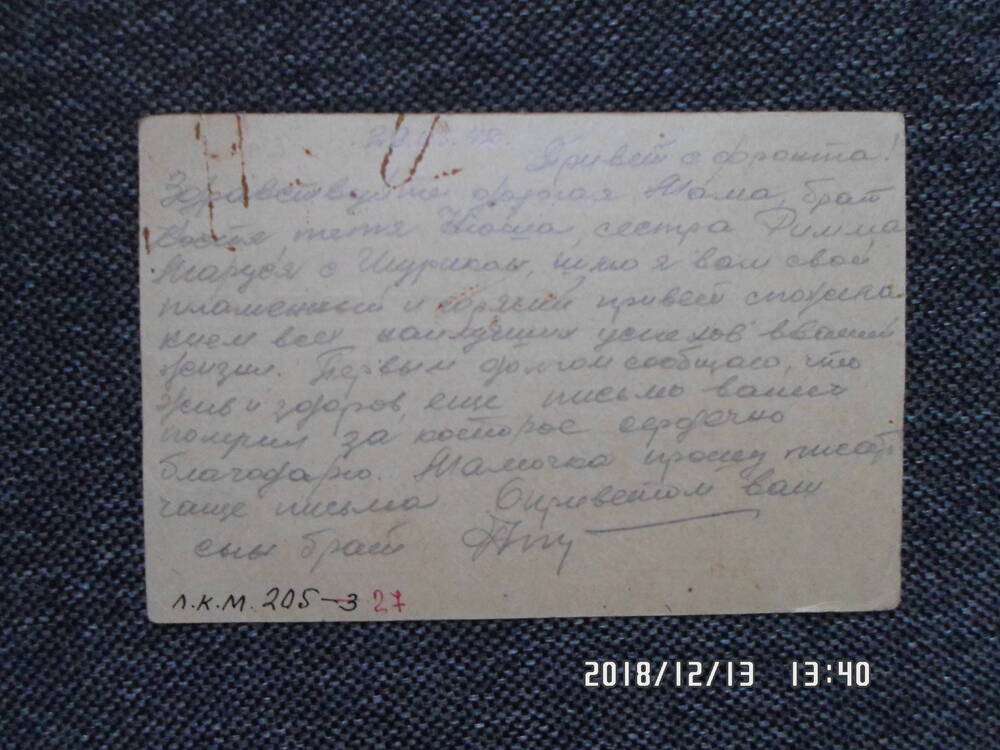 Привет с фронта!
Здравствуйте дорогая Мама, брат
Костя, тетя Ксюша, сестра Римма
Маруся с Шуриком, шлю я вам свой
пламенный и горячий привет с пожела
нием всех наилучших успехов в вашей
жизни. Первым долгом сообщаю, что
жив и здоров, еще письмо ваше
получил за которое сердечно
благодарю. Мамочка прошу писать
чаще письма С приветом ваш
сын брат
Л.К.М. 205-3 27
2018/12/13 13:40